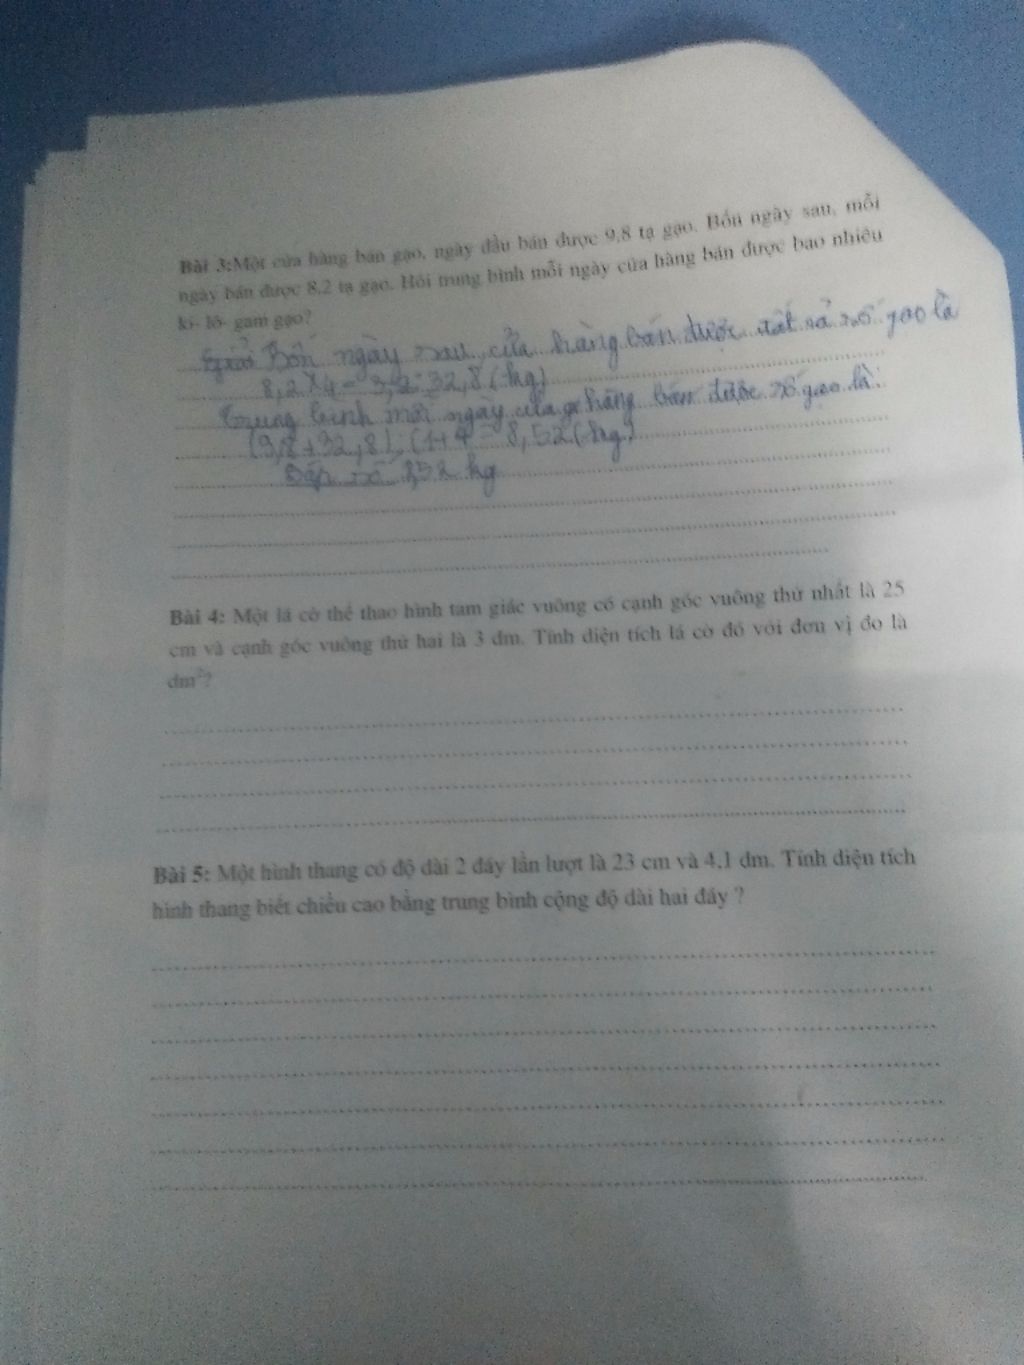 Bài 3:Một cửa hàng bán gạo, ngày đầu bán được 9,8 tạ gạo. Bốn ngày sau, mỗi
ngày bán được 8,2 tạ gạo. Hỏi trung bình mỗi ngày cửa hàng bán được bao nhiêu
ki- lô- gam gạo?
Bốn ngày sau cửa hàng bán được tất cả số gạo là
8,2 x 4 = 32,8 (kg)
Trung bình mỗi ngày cửa hàng bán được số gạo là:
(9,8 + 32,8) : (1+4 = 8,52 (kg)
Đáp số 8,52 kg
Bài 4: Một lá cờ thể thao hình tam giác vuông có cạnh góc vuông thứ nhất là 25
cm và cạnh góc vuông thứ hai là 3 dm. Tính diện tích lá cờ đó với đơn vị đo là
dm²?
Bài 5: Một hình thang có độ dài 2 đáy lần lượt là 23 cm và 4,1 dm. Tính diện tích
hình thang biết chiều cao bằng trung bình cộng độ dài hai đáy ?